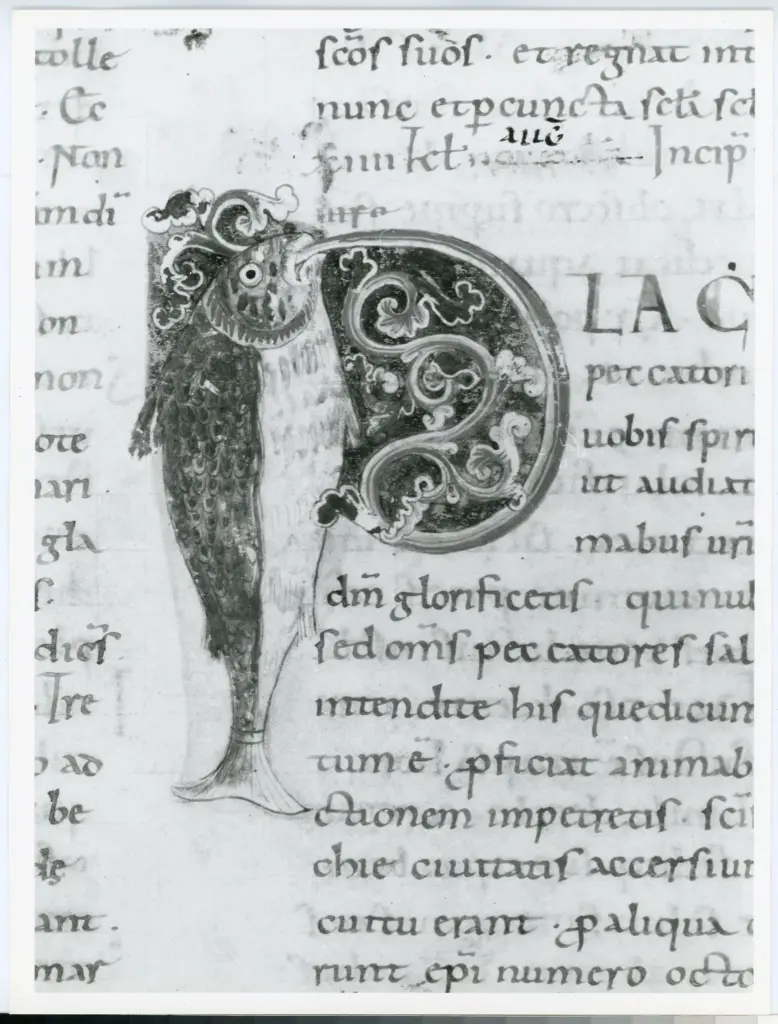 tolle
. Ec
. Non
imdi
im
on
non
ote
nari .
gla
s.
dicſ
. Ire
ad
be
am .
mar
scōſ ſuōſ . et regnat int
nunc et p cuncta ſcła ſcł
auḡ
Incip̄
P LA Q
peccatori
uobiſ ſpiri
ut audiat
mabuſ urī
dm̄ glorificetiſ . qui nul
ſed om̄ſ peccatoreſ ſal
intendite hiſ que dicun
tum ē . ꝓficiat animab
ctionem impetretiſ . ſci
chie ciuitatiſ accerſiun
cuttu erant . ꝓ aliqua
runt epī numero octo